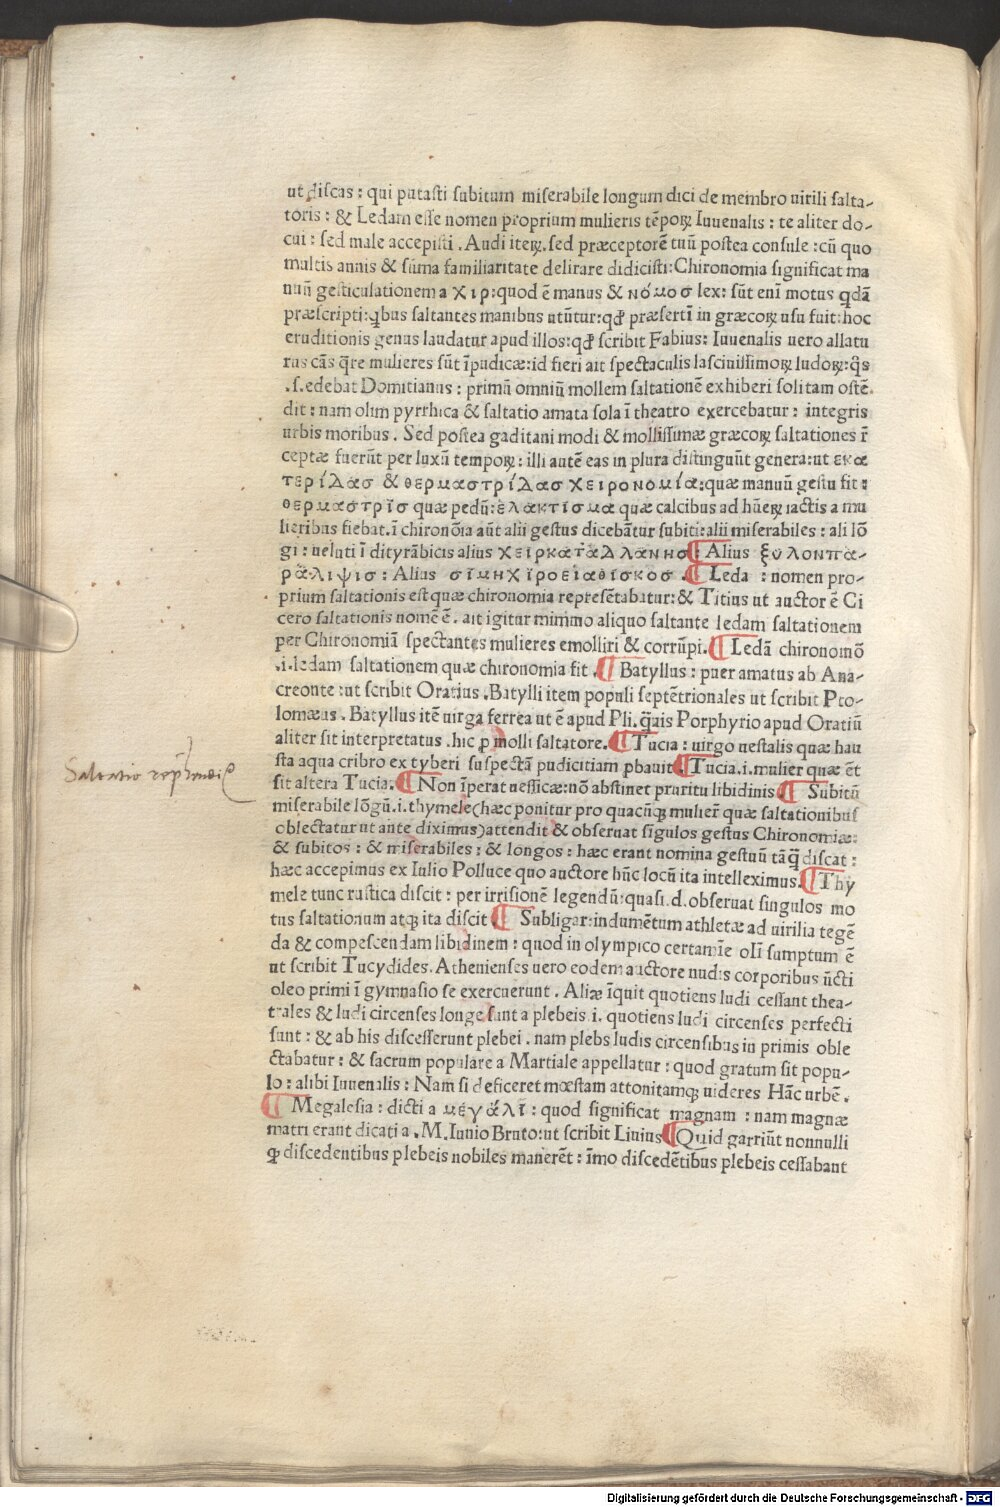 ut discas : qui putasti subitum miserabile longum dici de membro uirili salta-
toris : & Ledam esse nomen proprium mulieris tēporꝝ Iuuenalis : te aliter do-
cui : sed male accepisti . Audi iterꝝ. sed præceptorē tuū postea consule : cū quo
multis annis & sūma familiaritate delirare didicisti: Chironomia significat ma
nuū gesticulationem a χιρ: quod ē manus & νόμοσ lex: sūt enī motus qdā
præscripti: qbus saltantes manibus utūtur: qđ præsertī in græcorꝝ usu fuit: hoc
eruditionis genus laudatur apud illos: qđ scribit Fabius: Iuuenalis uero allatu
rus cās q̄re mulieres sūt īpudicæ: id fieri ait spectaculis lasciuissimorꝝ ludorꝝ: q̄s
.s. edebat Domitianus : primū omniū mollem saltationē exhiberi solitam ostē-
dit : nam olim pyrrhica & saltatio amata sola ī theatro exercebatur : integris
urbis moribus . Sed postea gaditani modi & mollissimæ græcorꝝ saltationes r̄
ceptæ fuerūt per luxū temporꝝ : illi autē eas in plura distinguūt genera: ut εκα
τερίδασ & θερμαστρίδασ χειρονομία: quæ manuū gestu fit :
θερμαστρῒσ quæ pedū: ἐλακτίσμα quæ calcibus ad hūerꝝ iactis a mu
lieribus fiebat. ī chironōia aūt alii gestus dicebātur subiti: alii miserabiles : ali lō
gi : ueluti ī dityrābicis alius χειρκατὰδλαννησ: ¶ Alius ξυλονπα-
ρἄλιψισ : Alius σῒμηχῒροεῒαθῒσκοσ . ¶ Leda : nomen pro-
prium saltationis est quæ chironomia represētabatur: & Titius ut auctor ē Ci
cero saltationis nomē ē. ait igitur mimmo aliquo saltante ledam saltationem
per Chironomiā spectantes mulieres emolliri & corrūpi. ¶ Ledā chironomō
.i. ledam saltationem quæ chironomia fit . ¶ Batyllus : puer amatus ab Ana-
creonte : ut scribit Oratius . Batylli item populi septētrionales ut scribit Pto-
lomæus . Batyllus itē uirga ferrea ut ē apud Pli. q̄uis Porphyrio apud Oratiū
aliter sit interpretatus . hic p molli saltatore. ¶ Tucia : uirgo uestalis quæ hau
sta aqua cribro ex tyberi suspectā pudicitiam pbauit ¶ Tucia .i. mulier quæ ēt
sit altera Tucia. ¶ Non īperat uessicæ: nō abstinet pruritu libidinis ¶ Subitū
miserabile lōgū .i. thymele (hæc ponitur pro quacūqꝫ muliere quæ saltationibus
oblectatur ut ante diximus) attendit & obseruat sīgulos gestus Chironomiæ:
& subitos : & miserabiles : & longos : hæc erant nomina gestuū tāq̄ discat :
hæc accepimus ex Iulio Polluce quo auctore hūc locū ita intelleximus. ¶ Thy
mele tunc rustica discit : per irrisionē legendū: quasi .d. obseruat singulos mo
tus saltationum atqꝫ ita discit ¶ Subligar: indumētum athletæ ad uirilia tegē
da & compescendam libidinem : quod in olympico certamīe olī sumptum ē
ut scribit Tucydides. Athenienses uero eodem auctore nudis corporibus ūcti
oleo primi ī gymnasio se exercuerunt . Aliæ īquit quotiens ludi cessant thea-
trales & ludi circenses longe sunt a plebeis i. quotiens ludi circenses perfecti
sunt : & ab his discesserunt plebei . nam plebs ludis circensibus in primis oble
ctabatur : & sacrum populare a Martiale appellatur : quod gratum sit popu-
lo : alibi Iuuenalis : Nam si deficeret mœstam attonitamqꝫ uideres Hāc urbē .
¶ Megalesia : dicti a μέγἄλῒ : quod significat magnam : nam magnæ
matri erant dicati a . M. Iunio Bruto: ut scribit Liuius ¶ Quid garriūt nonnulli
ꝙ discedentibus plebeis nobiles manerēt : īmo discedētibus plebeis cessabant
Saltatio
Digitalisierung gefördert durch die Deutsche Forschungsgemeinschaft - DFG